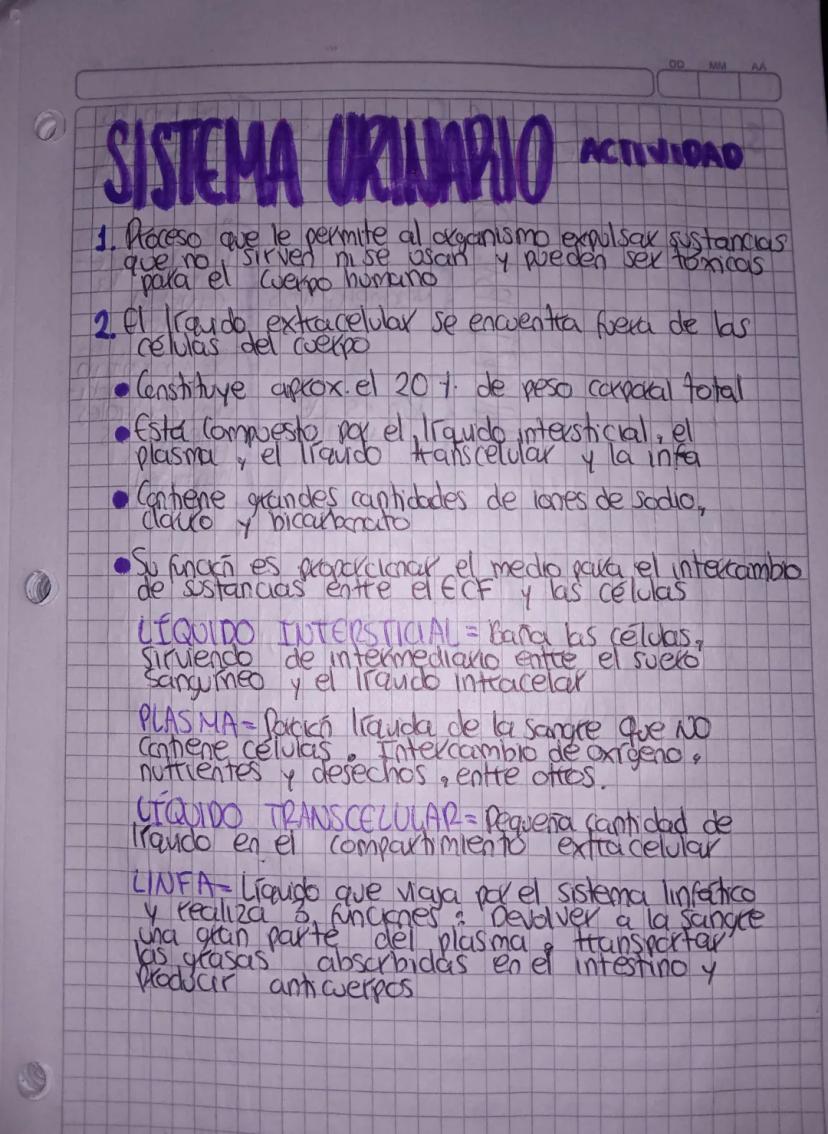 DD MM AA
SISTEMA URINARIO ACTIVIDAD
1. Proceso que le permite al organismo expulsar sustancias
que no sirven ni se usan y pueden ser tóxicas
para el cuerpo humano
2. El líquido extracelular se encuentra fuera de las
células del cuerpo
• Constituye aprox. el 20 % de peso corporal total
• Está compuesto por el líquido intersticial, el
plasma, el líquido transcelular y la infa
• Contiene grandes cantidades de iones de sodio,
clouro y bicarbonato
• Su función es proporcionar el medio para el intercambio
de sustancias entre el ECF y las células
LÍQUIDO INTERSTICIAL = Baña las células,
sirviendo de intermediario entre el suero
sanguíneo y el líquido intracelar
PLASMA = Porción líquida de la sangre que NO
contiene células. Intercambio de oxígeno,
nutrientes y desechos, entre otros.
LÍQUIDO TRANSCELULAR = Pequeña cantidad de
líquido en el compartimiento extracelular
LINFA = Líquido que viaja por el sistema linfático
y realiza 3 funciones: Devolver a la sangre
una gran parte del plasma, transportar
las grasas absorbidas en el intestino y
producir anticuerpos